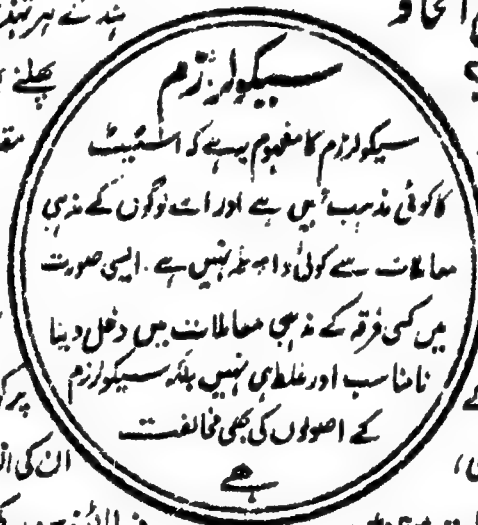 سیکولرزم
سیکولرزم کا مفہوم یہ ہے کہ اسٹیٹ
کا کوئی مذہب نہیں ہے اور اسے لوگوں کے مذہبی
معاملات سے کوئی واسطہ نہیں ہے ۔ ایسی صورت
میں کسی فرقہ کے مذہبی معاملات میں دخل دینا
نامناسب اور غلط ہی نہیں بلکہ سیکولرزم
کے اصولوں کی بھی مخالفت
ہے